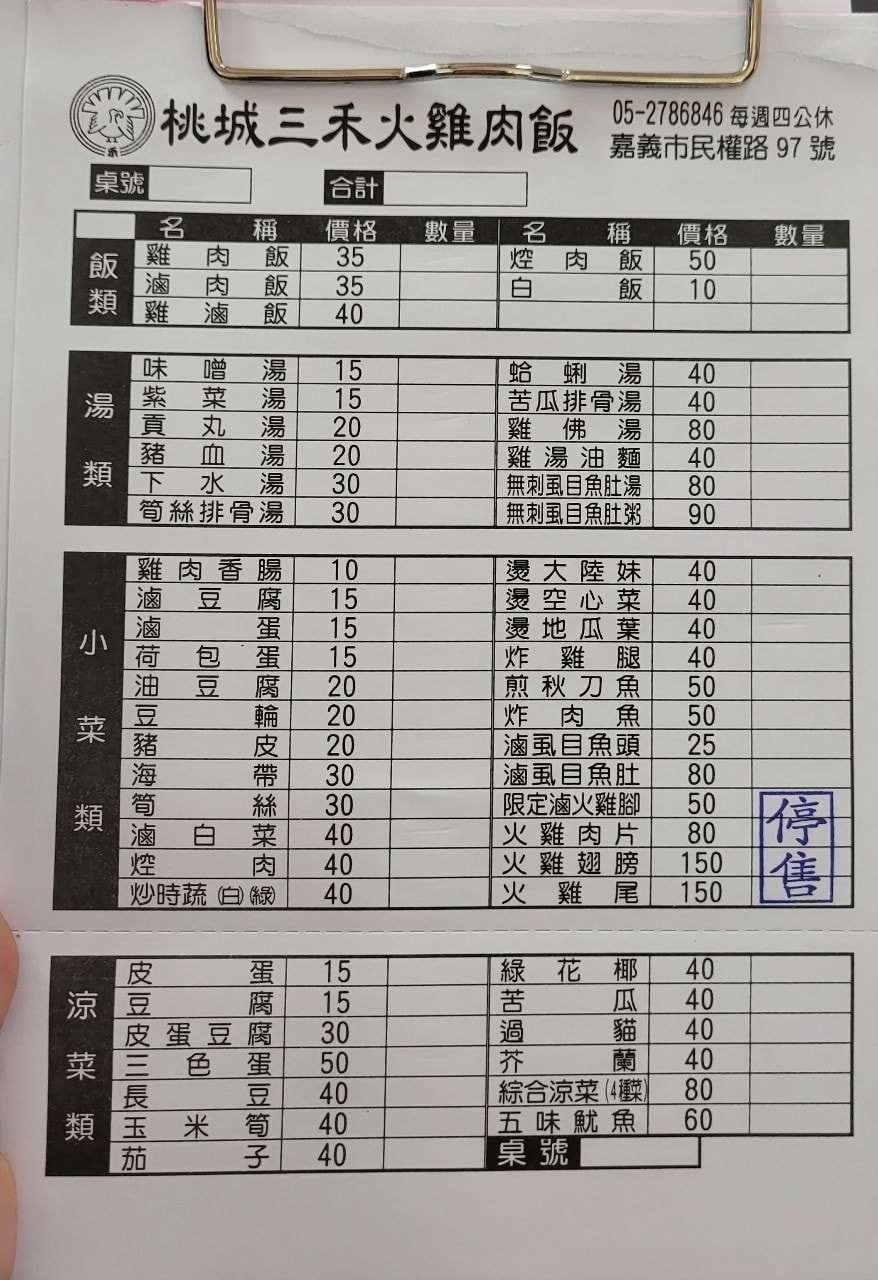 桃城三禾火雞肉飯 05-2786846 每週四公休
嘉義市民權路 97 號
禾
桌號 合計
名稱 價格 數量 名稱 價格 數量
飯類
雞肉飯 35 焢肉飯 50
滷肉飯 35 白飯 10
雞滷飯 40
湯類
味噌湯 15 蛤蜊湯 40
紫菜湯 15 苦瓜排骨湯 40
貢丸湯 20 雞佛湯 80
豬血湯 20 雞湯油麵 40
下水湯 30 無刺虱目魚肚湯 80
筍絲排骨湯 30 無刺虱目魚肚粥 90
小菜類
雞肉香腸 10 燙大陸妹 40
滷豆腐 15 燙空心菜 40
滷蛋 15 燙地瓜葉 40
荷包蛋 15 炸雞腿 40
油豆腐 20 煎秋刀魚 50
豆輪 20 炸肉魚 50
豬皮 20 滷虱目魚頭 25
海帶 30 滷虱目魚肚 80
筍絲 30 限定滷火雞腳 50
滷白菜 40 火雞肉片 80
焢肉 40 火雞翅膀 150
炒時蔬(白)(綠) 40 火雞尾 150
停售
涼菜類
皮蛋 15 綠花椰 40
豆腐 15 苦瓜 40
皮蛋豆腐 30 過貓 40
三色蛋 50 芥蘭 40
長豆 40 綜合涼菜(4種菜) 80
玉米筍 40 五味魷魚 60
茄子 40 桌號